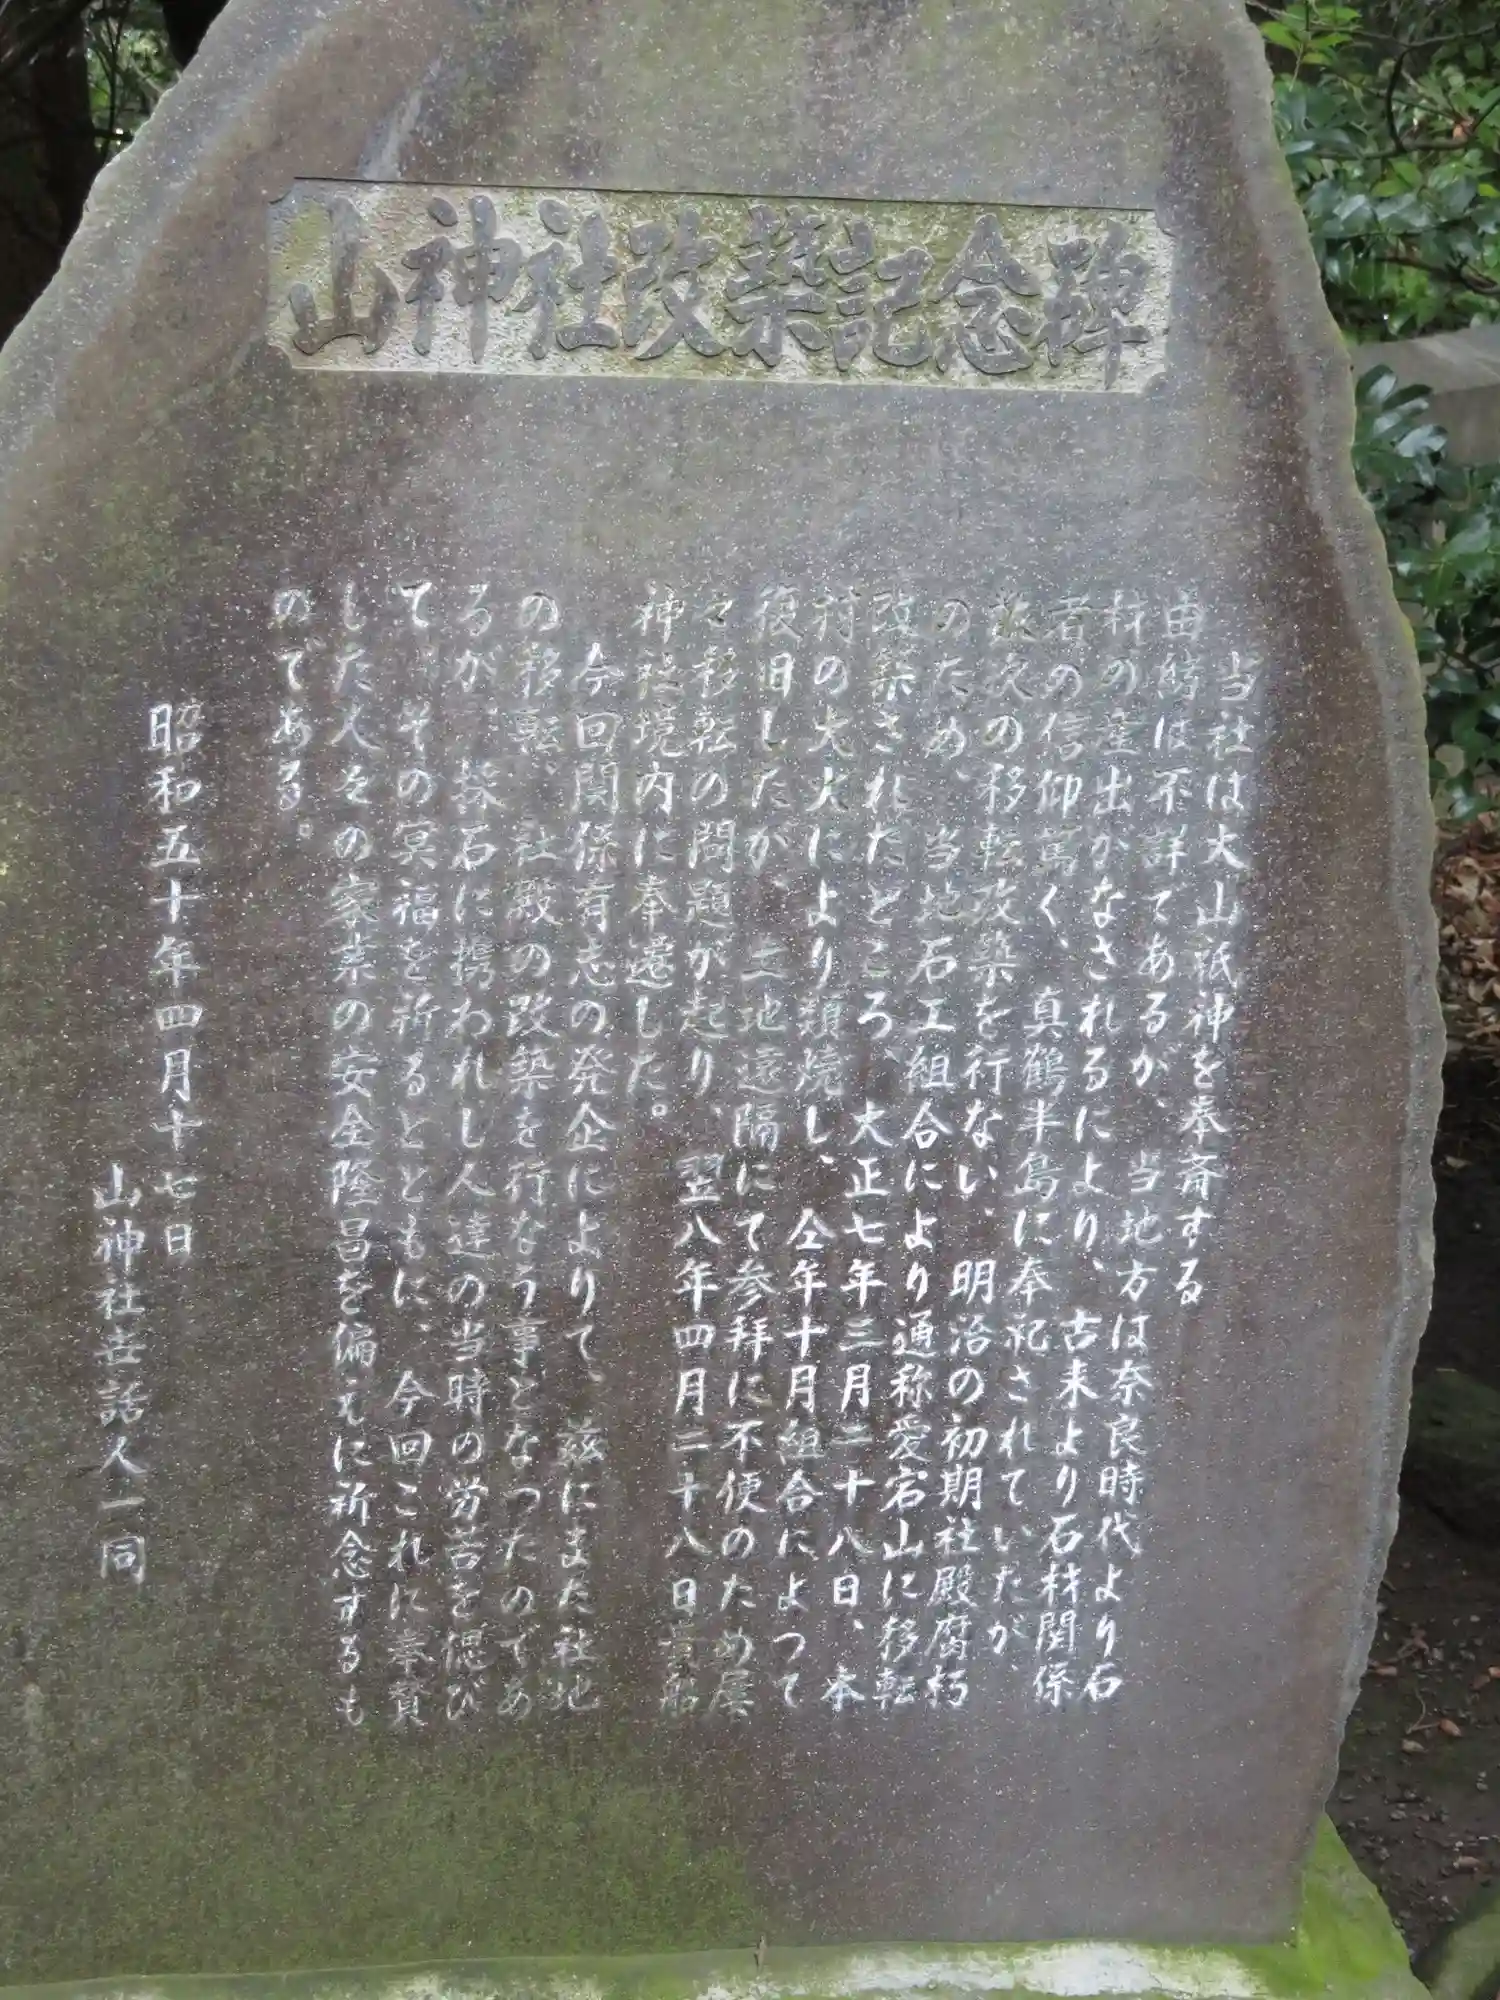 山神社改築記念碑
当社は大山祇神を奉斎する
は不詳であるが、当地方は奈良時代より石
材の産出がなされるにより、古来より石材関係
者の信仰篤く、真鶴半島に奉祀されていたが、
の移転改築を行ない、明治の初期社殿腐朽
のため、当地石工組合により通称愛宕山に移転
改築されたところ、大正七年三月二十八日、本
村の大火により類焼し、仝年十月組合によつて
復旧したが、土地遠隔にて参拝に不便のため屡
々移転の問題が起り、翌八年四月二十八日貴船
神社境内に奉遷した。
今回関係有志の発企によりて、茲にまた社地
の移転、社殿の改築を行なう事となつたのであ
るが、石に携われし人達の当時の労苦を偲び
て、その冥福を祈るとともに、今回これに奉賛
した人々の家業の安全隆昌を偏えに祈念するも
のである。
昭和五十年四月十七日
山神社世話人一同